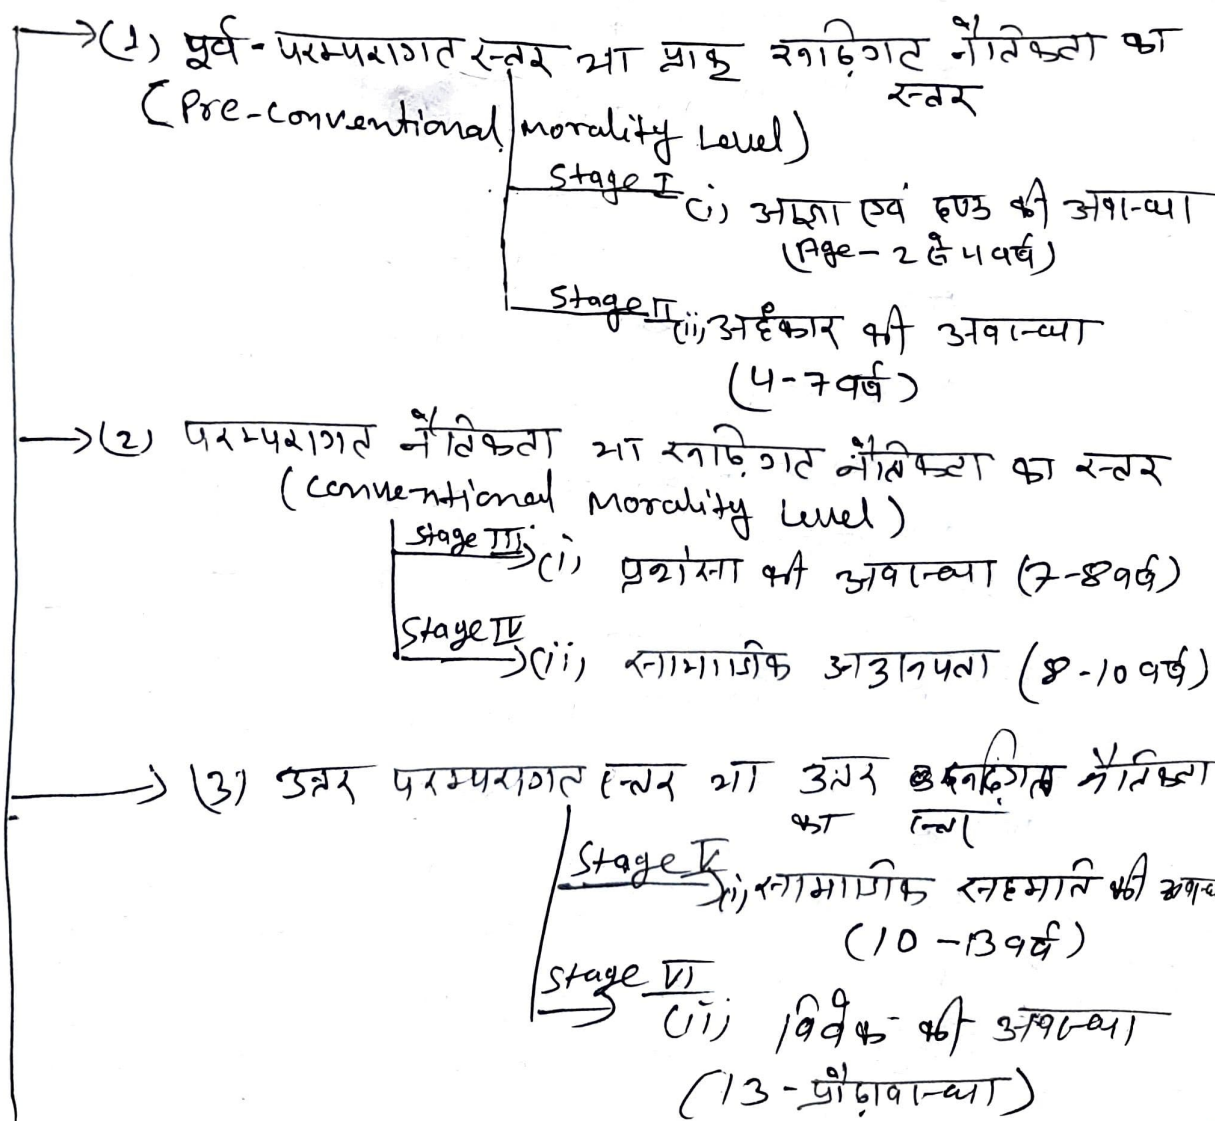 →(1) पूर्व - परम्परागत स्तर या प्राक् रूढ़िगत नैतिकता का
स्तर
(Pre-conventional morality Level)
Stage I
(i) आज्ञा एवं दण्ड की अवस्था
(Age - 2 से 4 वर्ष)
Stage II
(ii) अहंकार की अवस्था
(4-7 वर्ष)
→(2) परम्परागत नैतिकता या रूढ़िगत नैतिकता का स्तर
(conventional Morality Level)
Stage III
(i) प्रशंसा की अवस्था (7-8 वर्ष)
Stage IV
(ii) सामाजिक (8-10 वर्ष)
→ (3) उत्तर परम्परागत स्तर या उत्तर रूढ़िगत नैतिकता
का स्तर
Stage V
(i) सामाजिक सहमति की
(10 - 13 वर्ष)
Stage VI
(ii) विवेक की अवस्था
(13 - प्रौढ़ावस्था)